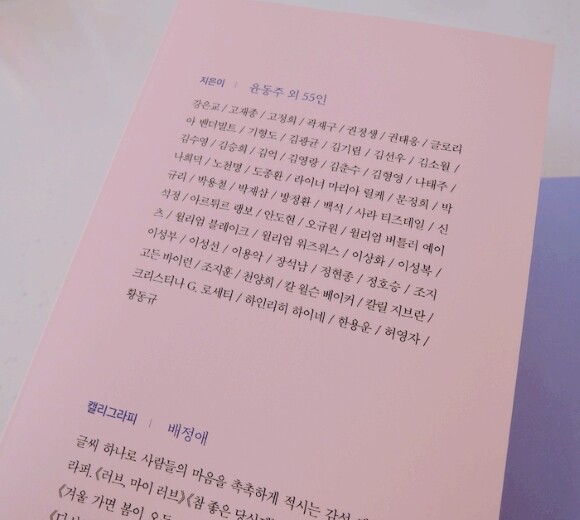 지은이 | 윤동주 외 55인
강은교 / 고재종 / 고정희 / 곽재구 / 권정생 / 권태응 / 글로리
아 밴더빌트 / 기형도 / 김광균 / 김기림 / 김선우 / 김소월 /
김수영 / 김승희 / 김억 / 김영랑 / 김춘수 / 김형영 / 나태주 /
나희덕 / 노천명 / 도종환 / 라이너 마리아 릴케 / 문정희 / 박
규리 / 박용철 / 박재삼 / 방정환 / 백석 / 사라 티즈데일 / 신
석정 / 아르튀르 랭보 / 안도현 / 오규원 / 윌리엄 버틀러 예이
츠 / 윌리엄 블레이크 / 윌리엄 워즈워스 / 이상화 / 이성복 /
이성부 / 이성선 / 이용악 / 장석남 / 정현종 / 정호승 / 조지
고든 바이런 / 조지훈 / 천양희 / 칼 윌슨 베이커 / 칼릴 지브란 /
크리스티나 G. 로세티 / 하인리히 하이네 / 한용운 / 허영자 /
황동규
캘리그라피 | 배정애
글씨 하나로 사람들의 마음을 촉촉하게 적시는 감성
라퍼. 《러브, 마이 러브》 《참 좋은 당신
《겨울 가면 봄이 오듯